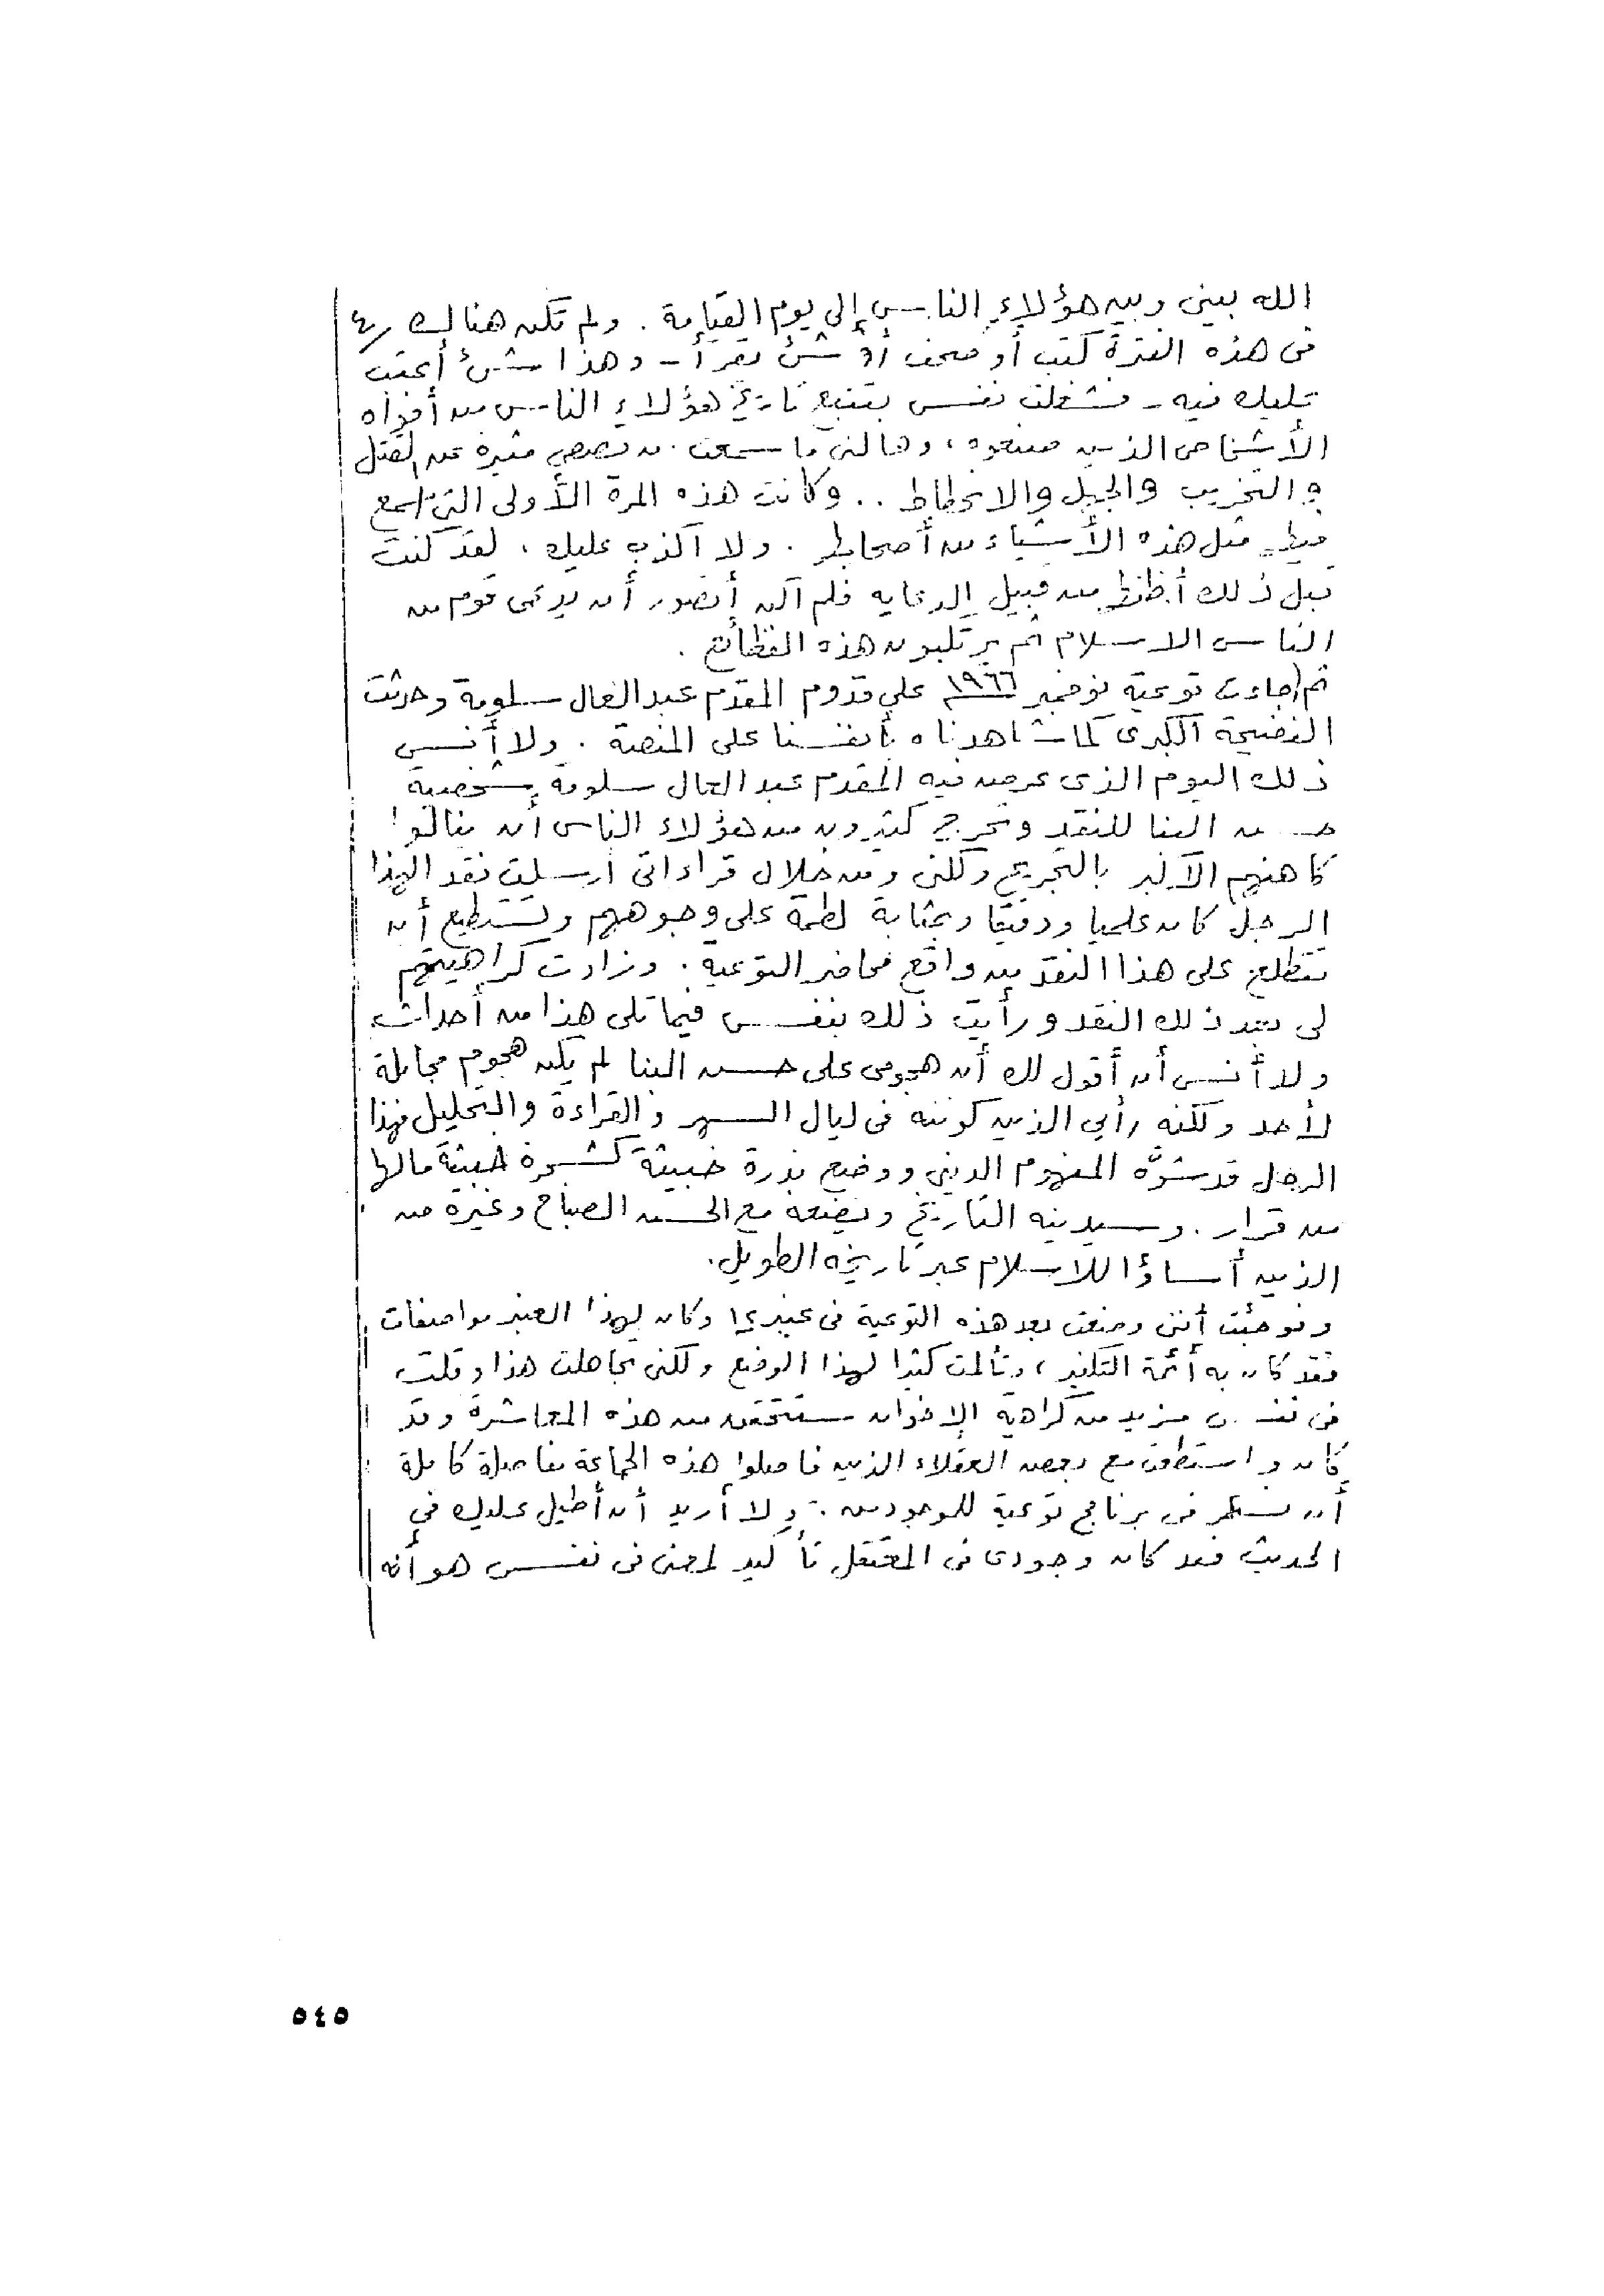 الله بيني وبين هؤلاء الناس إلى يوم القيامة . ولم تكن هنالك
في هذه الفترة كتب أو صحف أو شئ يقرأ - وهذا شئ أعتب
عليك فيه - فشغلت نفسى بتتبع تاريخ هؤلاء الناس من أفواه
الأشخاص الذين صنعوه ، وهالنى ما سمعت من قصص مثيرة عن القتل
والتخريب والجهل والانحطاط .. وكانت هذه المرة الأولى التي أسمع
فيها مثل هذه الأشياء من أصحابها . ولا أكذب عليك ، لقد كنت
قبل ذلك أظنها من قبيل الدعايه فلم أكن أتصور أن يدعى قوم من
الناس الاسلام ثم يرتكبون هذه الفظائع .
ثم جاءت توعية نوفمبر ١٩٦٦ على قدوم المقدم عبد العال سلومة وحدثت
الفضيحة الكبرى كما شاهدناه بأنفسنا على المنصة . ولا أنسى
ذلك اليوم الذى عرض فيه المقدم عبد العال سلومة شخصية
حسن البنا للنقد وتحرج كثيرون من هؤلاء الناس أن ينالوا
كاهنهم الأكبر بالتجريح ولكنى ومن خلال قراءاتى أرسلت نقد الهذا
الرجل كان علميا ودقيقا وبمثابة لطمة على وجوههم وتستطيع أن
تتطلع على هذا النقد من واقع محاضر التوعية . وزادت كراهيتهم
لى بعد ذلك النقد ورأيت ذلك بنفسى فيما تلى هذا من أحداث
ولا أنسى أن أقول لك أن هجومى على حسن البنا لم يكن هجوم مجاملة
لأحد ولكنه رأيي الذين كونته فى ليال السهر والقراءة والتحليل فهذا
الرجل قد شوَّه المفهوم الديني ووضع بذرة خبيثة كشجرة خبيثة مالها
من قرار . وسيدينه التاريخ ويضعه مع الحسن الصباح وغيره من
الذين أساؤا للاسلام عبر تاريخه الطويل .
وفوجئت أننى وضعت بعد هذه التوعية فى عنبر وكان لهذا العنبر مواصفات
فقد كان به أئمة التكفير ، وتألمت كثيرا لهذا الوضع ولكنى تجاهلت هذا وقلت
فى نفسى مزيد من كراهية الإخوان ستتحقق من هذه المعاشرة وقد
كان واستطعت مع بعض العقلاء الذين فاصلوا هذه الجماعة مفاصلة كاملة
أن نستمر فى برنامج توعية للموجودين . ولا أريد أن أطيل عليك في
الحديث فقد كان وجودى فى المعتقل تأكيد لمعنى فى نفسى هو أنه
٥٤٥